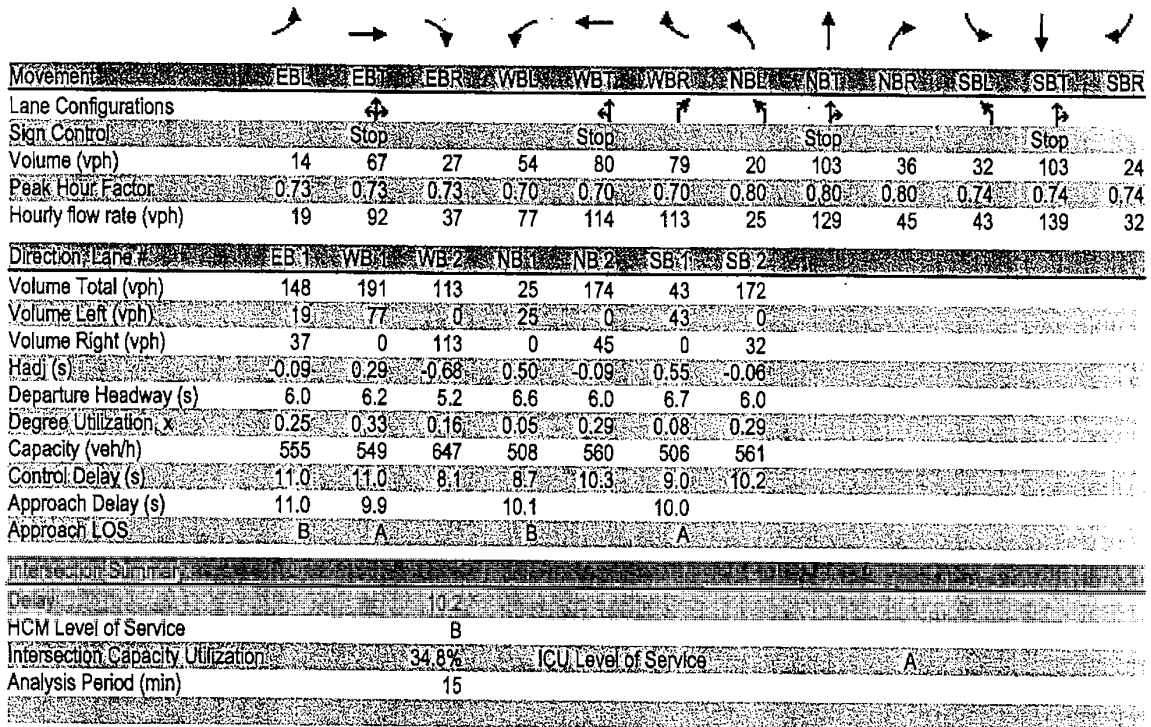 Movement EBL EBT EBR WBL WBT WBR NBL NBT NBR SBL SBT SBR
Lane Configurations
Sign Control Stop Stop Stop Stop
Volume (vph) 14 67 27 54 80 79 20 103 36 32 103 24
Peak Hour Factor 0.73 0.73 0.73 0.70 0.70 0.70 0.80 0.80 0.80 0.74 0.74 0.74
Hourly flow rate (vph) 19 92 37 77 114 113 25 129 45 43 139 32
Direction, Lane # EB 1 WB 1 WB 2 NB 1 NB 2 SB 1 SB 2
Volume Total (vph) 148 191 113 25 174 43 172
Volume Left (vph) 19 77 0 25 0 43 0
Volume Right (vph) 37 0 113 0 45 0 32
Hadj (s) -0.09 0.29 -0.68 0.50 -0.09 0.55 -0.06
Departure Headway (s) 6.0 6.2 5.2 6.6 6.0 6.7 6.0
Degree Utilization, x 0.25 0.33 0.16 0.05 0.29 0.08 0.29
Capacity (veh/h) 555 549 647 508 560 506 561
Control Delay (s) 11.0 11.0 8.1 8.7 10.3 9.0 10.2
Approach Delay (s) 11.0 9.9 10.1 10.0
Approach LOS B A B A
Intersection Summary
Delay 10.2
HCM Level of Service B
Intersection Capacity Utilization 34.8% ICU Level of Service A
Analysis Period (min) 15